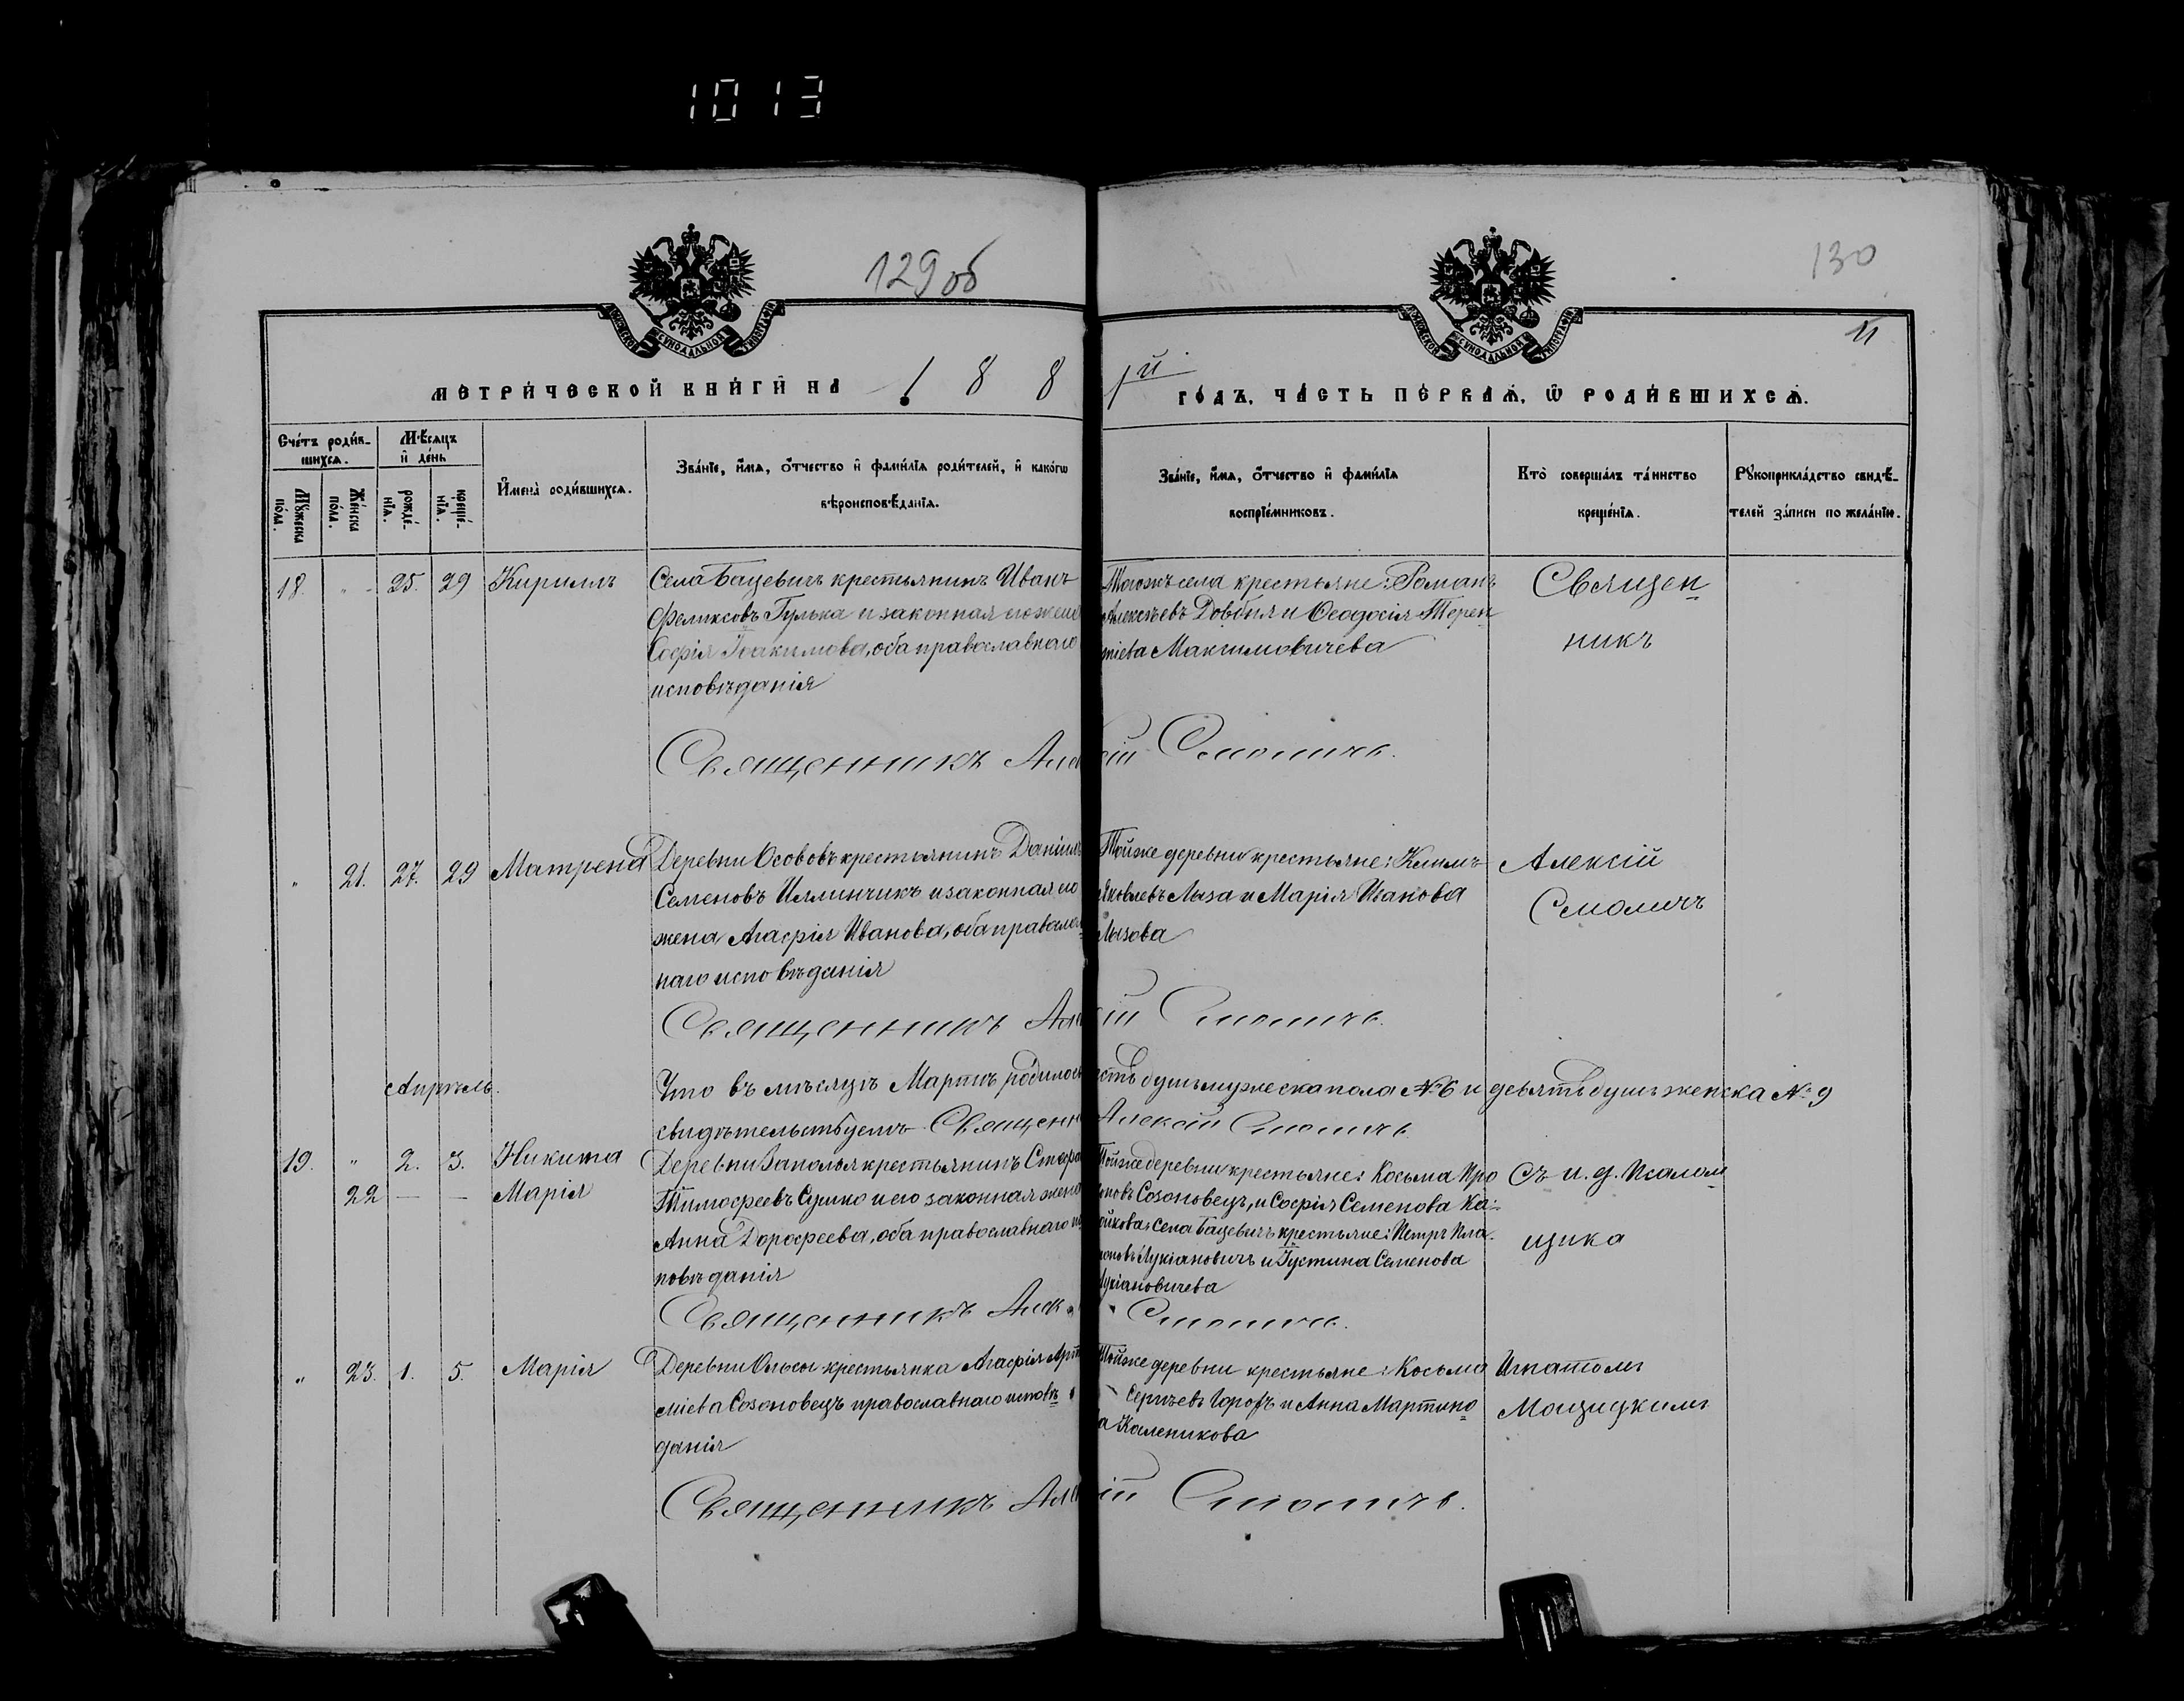 1013
129 об
130
МОСКОВСКОЙ СИНОДАЛЬНОЙ ТИПОГРАФІИ
МОСКОВСКОЙ СИНОДАЛЬНОЙ ТИПОГРАФІИ
11
МЕТРИЧЕСКОЙ КНИГИ НА 188
1й ГОДЪ, ЧАСТЬ ПЕРВАЯ, Ѡ РОДИВШИХСЯ.
Счетъ родив-
шихся.
Мѣсяцъ
и день
Мꙋжеска пола.
Женска пола.
рожде-нія.
креще-нія.
Имена родившихся.
Званіе, имя, отчество и фамилія родителей, и какогѡ
вѣроисповѣданія.
Званіе, имя, отчество и фамилія
воспріемниковъ.
Кто совершалъ таинство
крещенія.
Рꙋкоприкладство свидѣ-
телей записи по желанію.
18. " 25. 29 Кириллъ
Села Бацевичъ крестьянинъ Иванъ
Феликсовъ Гулька и законная его жена
Софія Іоакимова, оба православнаго
исповѣданія
Тогожъ села крестьяне: Романъ
Алексѣевъ Довбня и Ѳеодосія Терен-
тіева Максимовичева
Священ-
никъ
Священникъ Алексій Смоличъ.
" 21. 27. 29 Матрена
Деревни Осововъ крестьянинъ Даніилъ
Семеновъ Иллинчикъ и законная его
жена Агафія Иванова, оба православ-
наго исповѣданія
Тойже деревни крестьяне: Климъ
Яковлевъ Лыза и Марія Иванова
Лызова
Алексій
Смоличъ
Священникъ Алексій Смоличъ.
Апрѣль.
Что въ мѣсяцѣ Мартѣ родилось шесть душъ мужеска пола № 6 и девять душъ женска № 9
свидѣтельствуемъ Священникъ Алексій Смоличъ
19. " 2. 3. Никита
22 — — Марія
Деревни Заполья крестьянинъ Стефанъ
Тимофеевъ Сушко и его законная жена
Анна Дорофеева, оба православнаго ис
повѣданія
Тойже деревни крестьяне: Косьма Про
Созоновецъ, и Софія Семенова Ка-
села Бацевичъ крестьяне: Петръ Пла-
тоновъ Лукіановичъ и Іустина Семенова
Лукіановичева
Съ и. д. Псалом-
щика
Священникъ Алексій Смоличъ.
" 23. 1. 5. Марія
Деревни Ольсы крестьянка Агафія Арте
міева Созоновецъ православнаго исповѣ-
данія
Тойже деревни крестьяне: Косьма
Сергѣевъ и Анна Мартино-
ва Каленикова
Игнатомъ
Мощицкимъ
Священникъ Алексій Смоличъ.